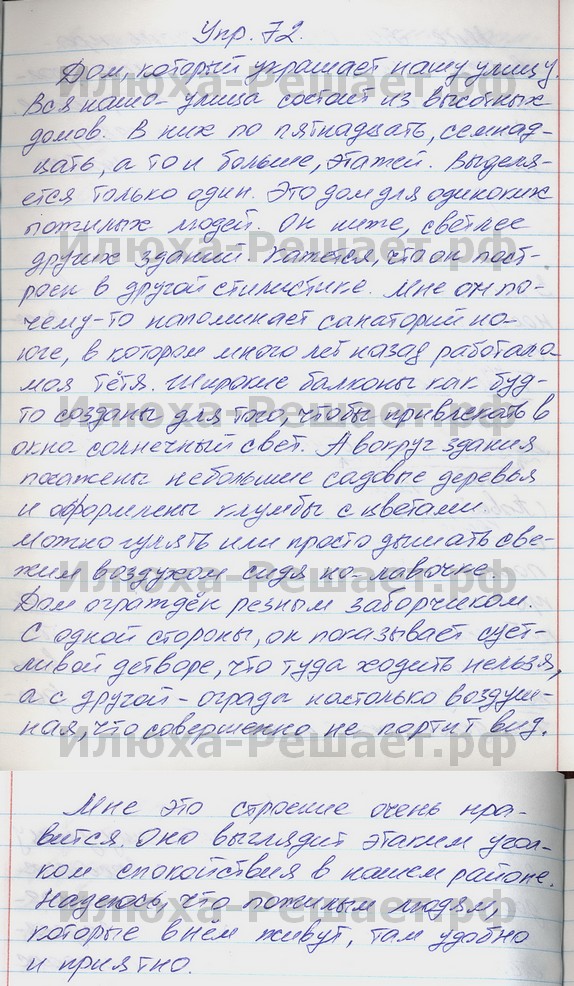 Упр. 72.
Дом, который украшает нашу улицу.
Вся наша улица состоит из высотных
домов. В них по пятнадцать, семнад-
цать, а то и больше, этажей. Выделя-
ется только один. Это дом для одиноких
пожилых людей. Он ниже, светлее
других зданий. Кажется, что он пост-
роен в другой стилистике. Мне он по-
чему-то напоминает санаторий на
юге, в котором много лет назад работала
моя тётя. Широкие балконы как буд-
то созданы для того, чтобы привлекать в
окна солнечный свет. А вокруг здания
посажены небольшие садовые деревья
и оформлены клумбы с цветами.
Можно гулять или просто дышать све-
жим воздухом сидя на лавочке.
Дом ограждён резным заборчиком.
С одной стороны, он показывает сует-
ливой детворе, что туда ходить нельзя,
а с другой - ограда настолько воздуш-
ная, что совершенно не портит вид.
Мне это строение очень нра-
вится. Оно выглядит этаким угол-
ком спокойствия в нашем районе.
Надеюсь, что пожилым людям,
которые в нём живут, там удобно
и приятно.
Илюха-Решает.рф
Илюха-Решает.рф
Илюха-Решает.рф
Илюха-Решает.рф
Илюха-Решает.рф
Илюха-Решает.рф